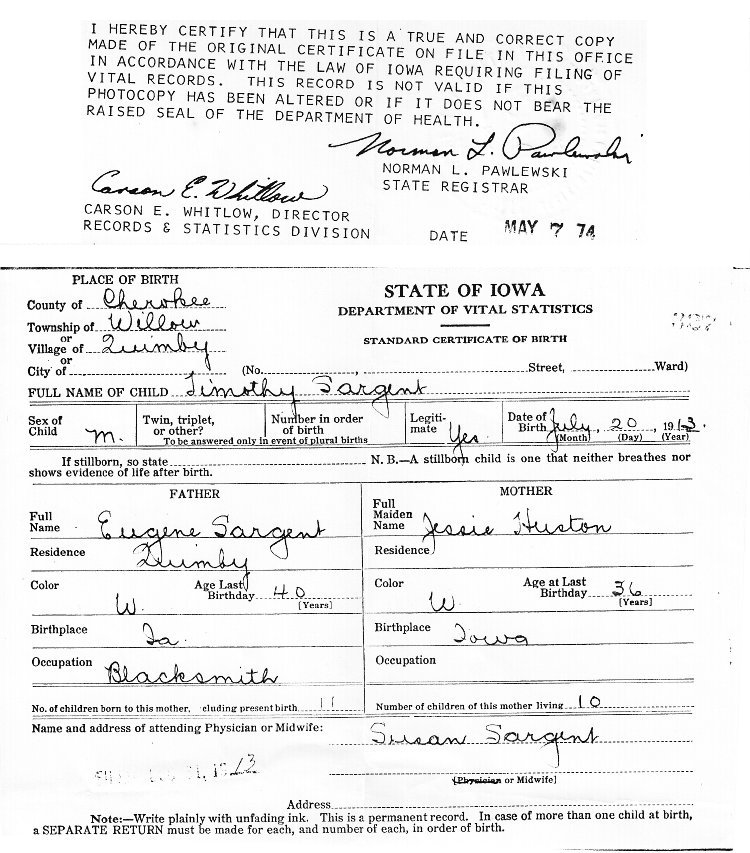 I HEREBY CERTIFY THAT THIS IS A TRUE AND CORRECT COPY
MADE OF THE ORIGINAL CERTIFICATE ON FILE IN THIS OFFICE
IN ACCORDANCE WITH THE LAW OF IOWA REQUIRING FILING OF
VITAL RECORDS. THIS RECORD IS NOT VALID IF THIS
PHOTOCOPY HAS BEEN ALTERED OR IF IT DOES NOT BEAR THE
RAISED SEAL OF THE DEPARTMENT OF HEALTH.
Norman L. Pawlewski
NORMAN L. PAWLEWSKI
STATE REGISTRAR
Carson E. Whitlow
CARSON E. WHITLOW, DIRECTOR
RECORDS & STATISTICS DIVISION
DATE MAY 7 74
PLACE OF BIRTH
County of Cherokee
Township of Willow
or
Village of Quimby
or
City of
STATE OF IOWA
DEPARTMENT OF VITAL STATISTICS
STANDARD CERTIFICATE OF BIRTH
(No. , Street, Ward)
FULL NAME OF CHILD Timothy Sargent
Sex of Child M.
Twin, triplet, or other?
Number in order of birth
To be answered only in event of plural births
Legitimate Yes
Date of Birth July, 20, 1913.
(Month) (Day) (Year)
If stillborn, so state N. B.—A stillborn child is one that neither breathes nor
shows evidence of life after birth.
FATHER
Full Name Eugene Sargent
Residence Quimby
Color W. Age Last Birthday 40
[Years]
Birthplace Ia.
Occupation Blacksmith
No. of children born to this mother, cluding present birth 11
MOTHER
Full Maiden Name Jessie Huston
Residence
Color W Age at Last Birthday 36
[Years]
Birthplace Iowa
Occupation
Number of children of this mother living 10
Name and address of attending Physician or Midwife:
Susan Sargent
(Physician or Midwife]
Address
Note:—Write plainly with unfading ink. This is a permanent record. In case of more than one child at birth,
a SEPARATE RETURN must be made for each, and number of each, in order of birth.